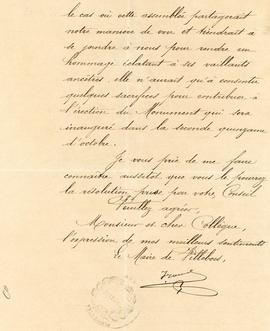 le cas où cette assemblée partagerait
notre manière de voir et tiendrait à
se joindre à nous pour rendre un
hommage éclatant à ses vaillants
ancêtres elle n'aurait qu'à consentir
quelques sacrifices pour contribuer à
l'érection du Monument qui sera
inauguré dans la seconde quinzaine
d'octobre.
Je vous prie de me faire
connaître aussitôt que vous le pourrez
la résolution prise par votre Conseil
Veuillez agréer
Monsieur et cher Collègue,
l'expression de mes meilleurs sentiments
Le Maire de Villebois,